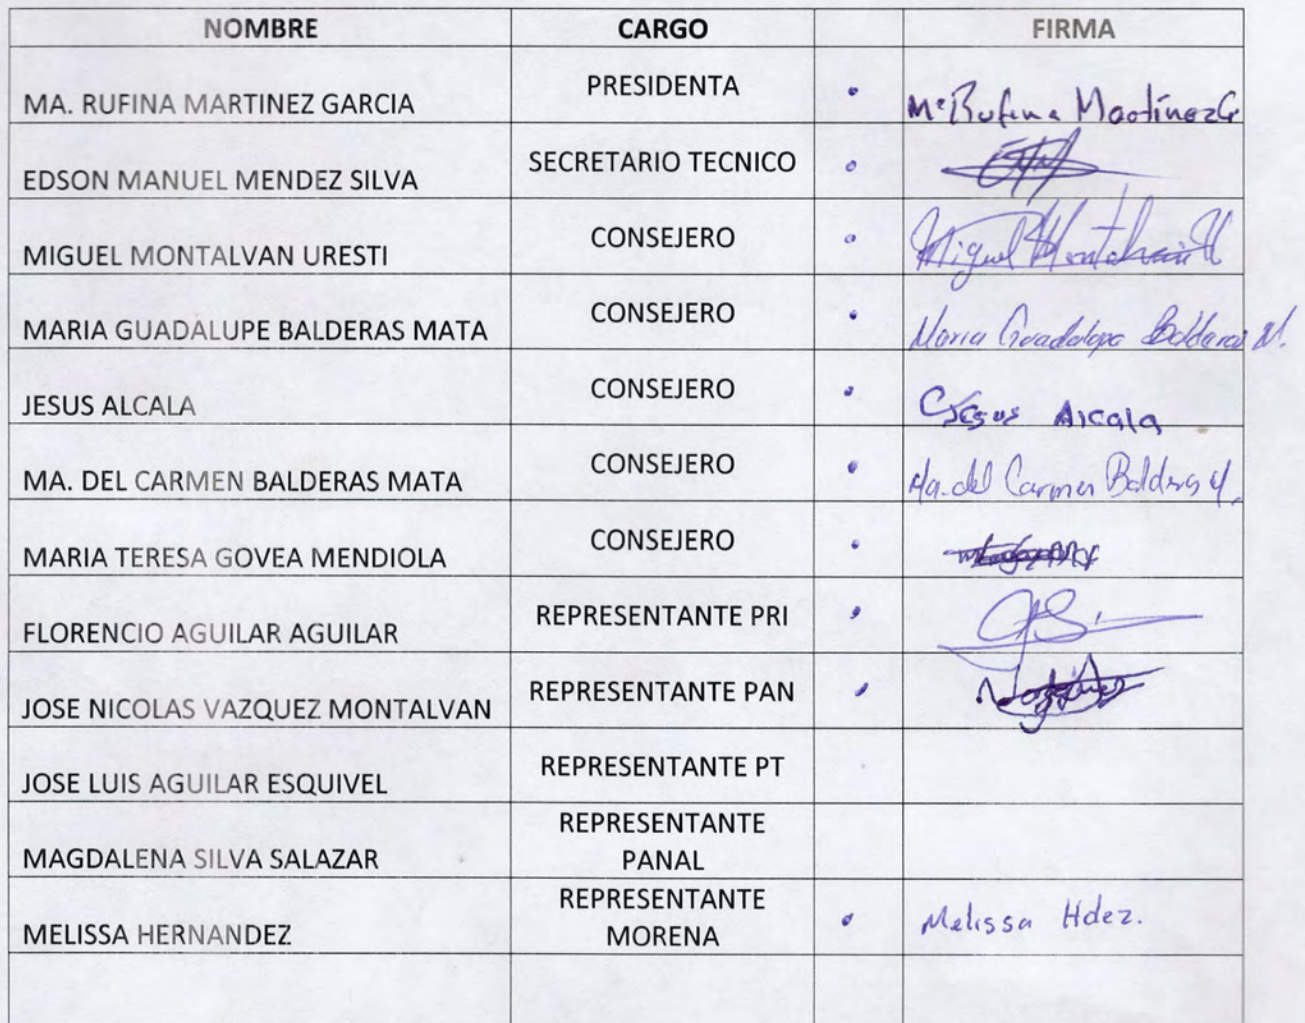 NOMBRE CARGO FIRMA
MA. RUFINA MARTINEZ GARCIA PRESIDENTA Mª Rufina Martínez G
EDSON MANUEL MENDEZ SILVA SECRETARIO TECNICO
MIGUEL MONTALVAN URESTI CONSEJERO Miguel Montalvan U
MARIA GUADALUPE BALDERAS MATA CONSEJERO Maria Guadalupe Balderas M.
JESUS ALCALA CONSEJERO Jesus Alcala
MA. DEL CARMEN BALDERAS MATA CONSEJERO Ma. del Carmen Balderas M.
MARIA TERESA GOVEA MENDIOLA CONSEJERO
FLORENCIO AGUILAR AGUILAR REPRESENTANTE PRI
JOSE NICOLAS VAZQUEZ MONTALVAN REPRESENTANTE PAN
JOSE LUIS AGUILAR ESQUIVEL REPRESENTANTE PT
MAGDALENA SILVA SALAZAR REPRESENTANTE
PANAL
MELISSA HERNANDEZ REPRESENTANTE
MORENA Melissa Hdez.